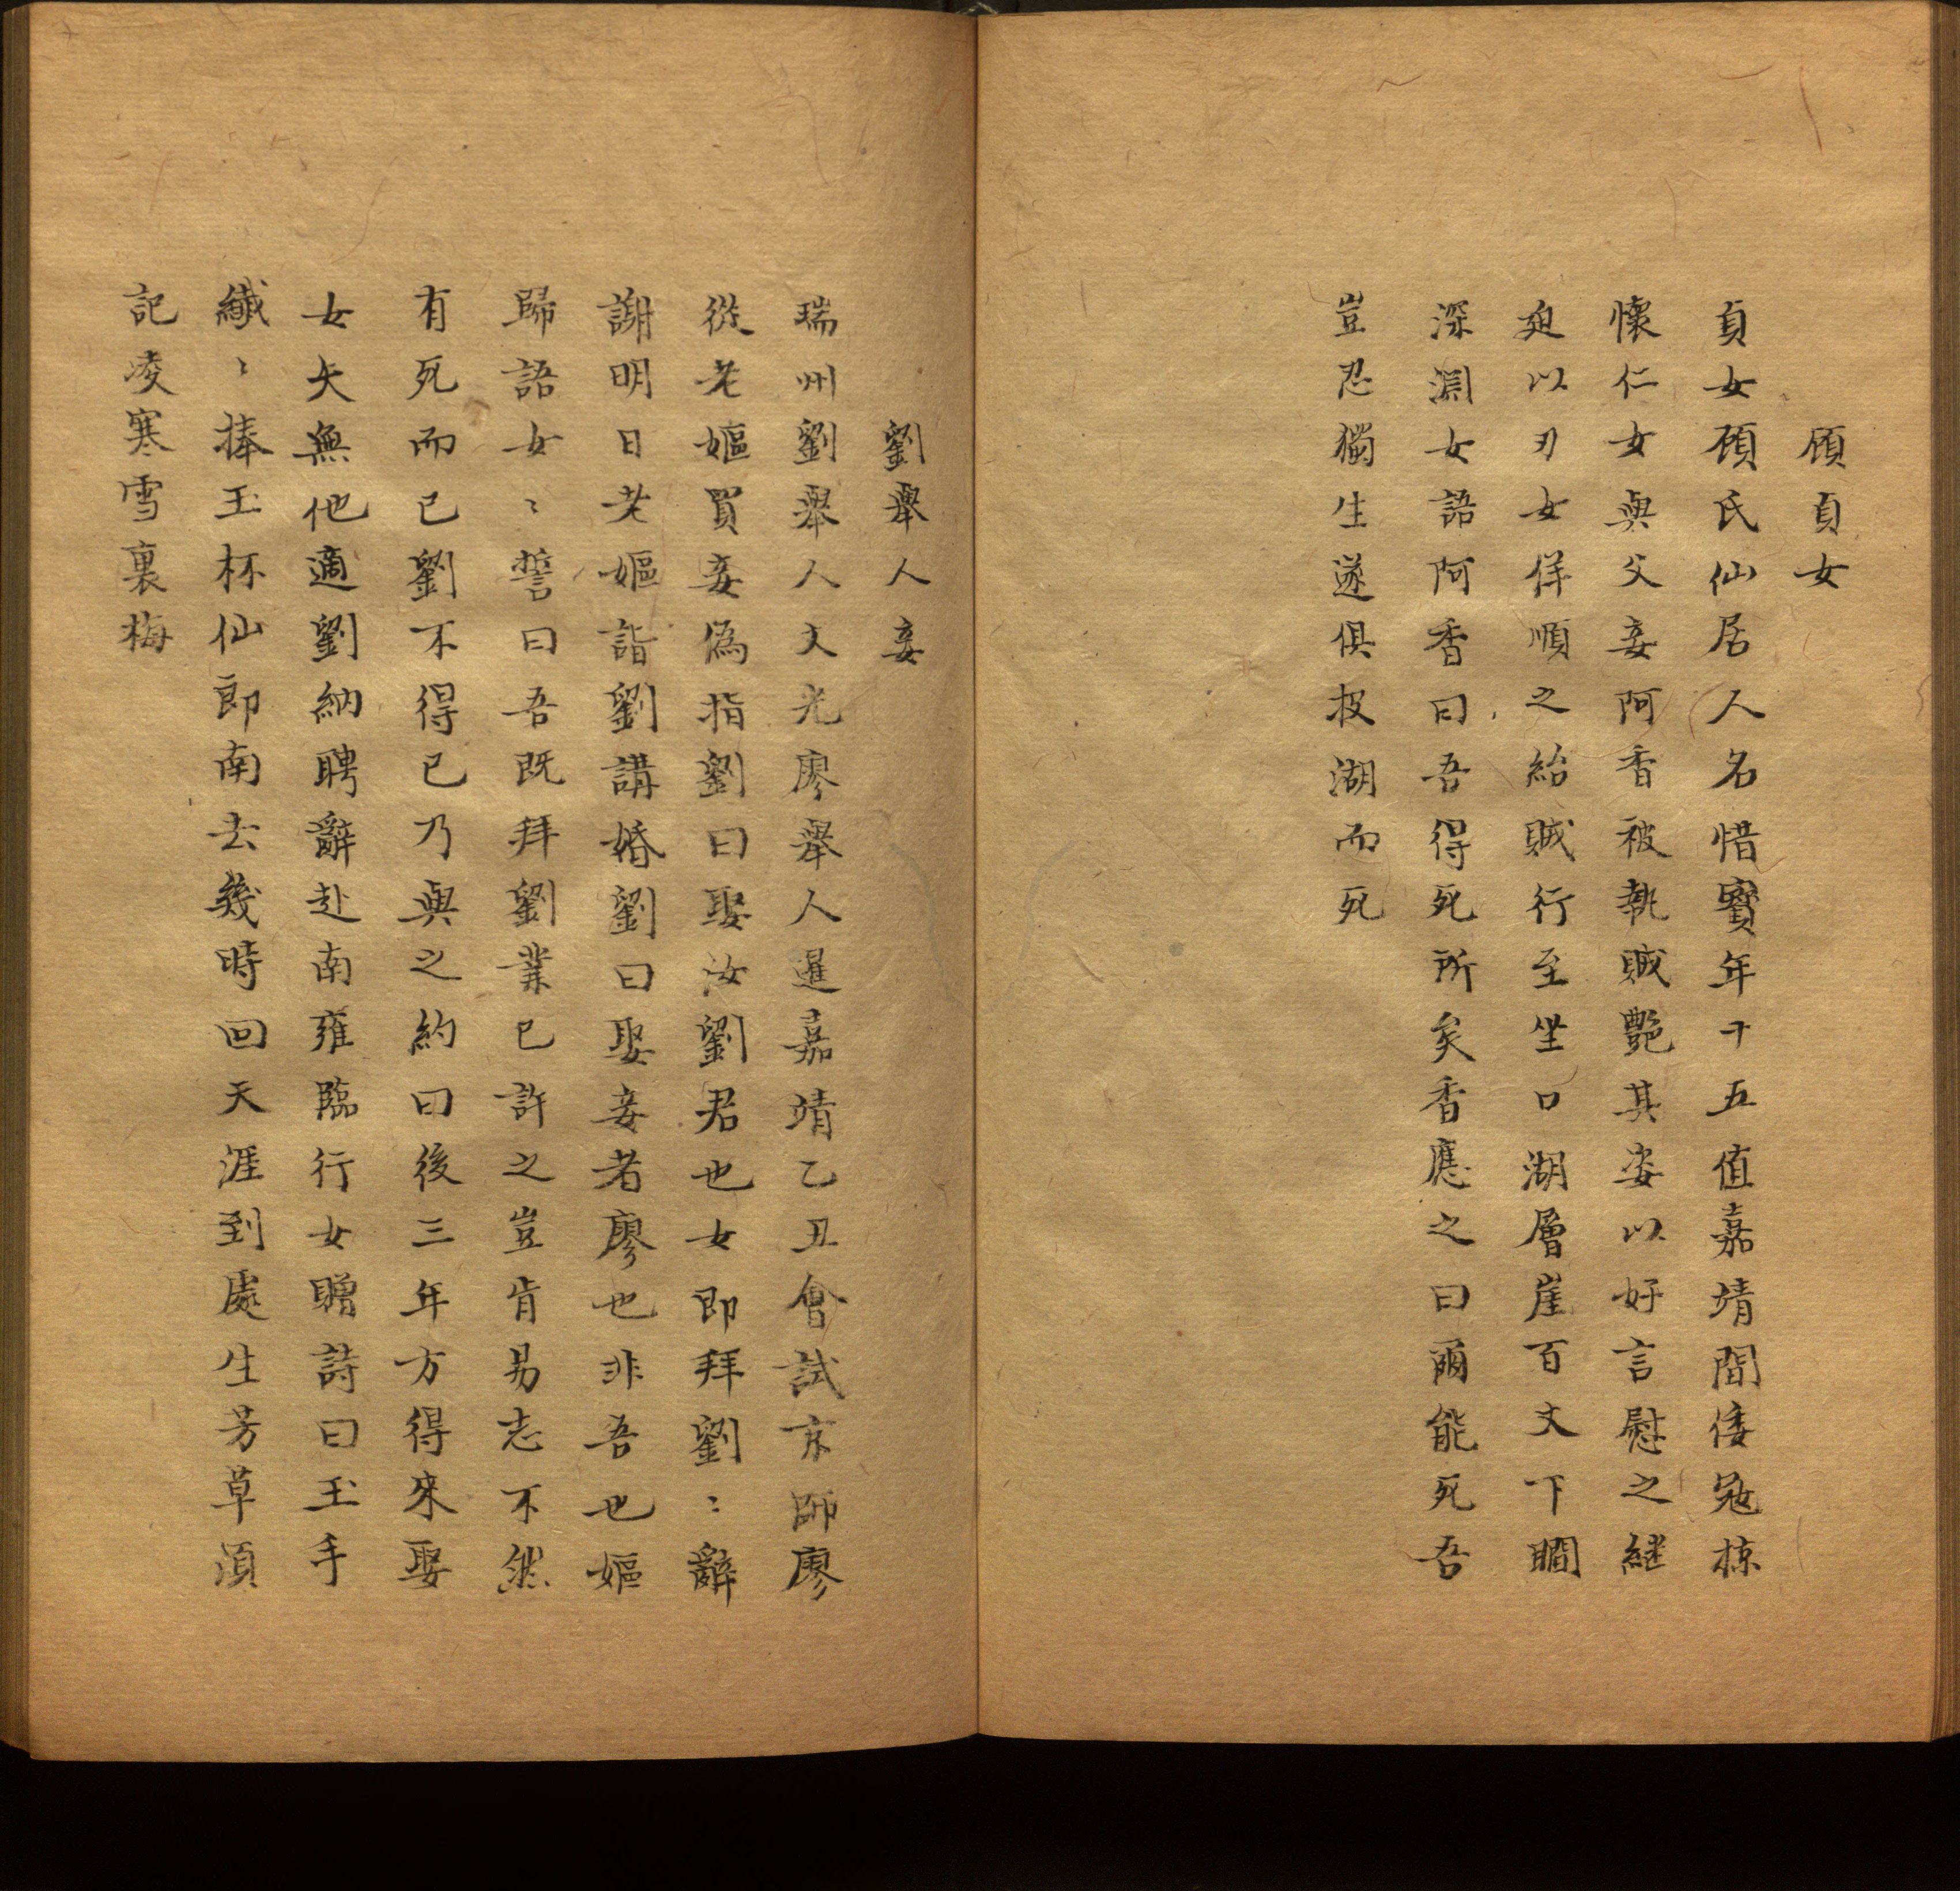 顧貞女
貞女顧氏仙居人名惜寶年十五值嘉靖間倭寇掠
懷仁女與父妾阿香被執賊艷其姿以好言慰之継
廹以刃女佯順之紿賊行至坐口湖層崖百丈下瞷
深淵女語阿香曰吾得死所矣香應之曰爾能死吾
豈忍獨生遂俱投湖而死
劉舉人妾
瑞州劉舉人文光廖舉人暹嘉靖乙丑會試京師廖
從老嫗買妾偽指劉曰娶汝劉君也女即拜劉〻辭
謝明日老嫗詣劉講婚劉曰娶妾者廖也非吾也嫗
歸語女〻誓曰吾既拜劉業已許之豈肯易志不然
有死而已劉不得已乃與之約曰後三年方得來娶
女矢無他適劉納聘辭赴南雍臨行女贈詩曰玉手
纖〻捧玉杯仙郎南去幾時回天涯到處生芳草須
記凌寒雪裏梅